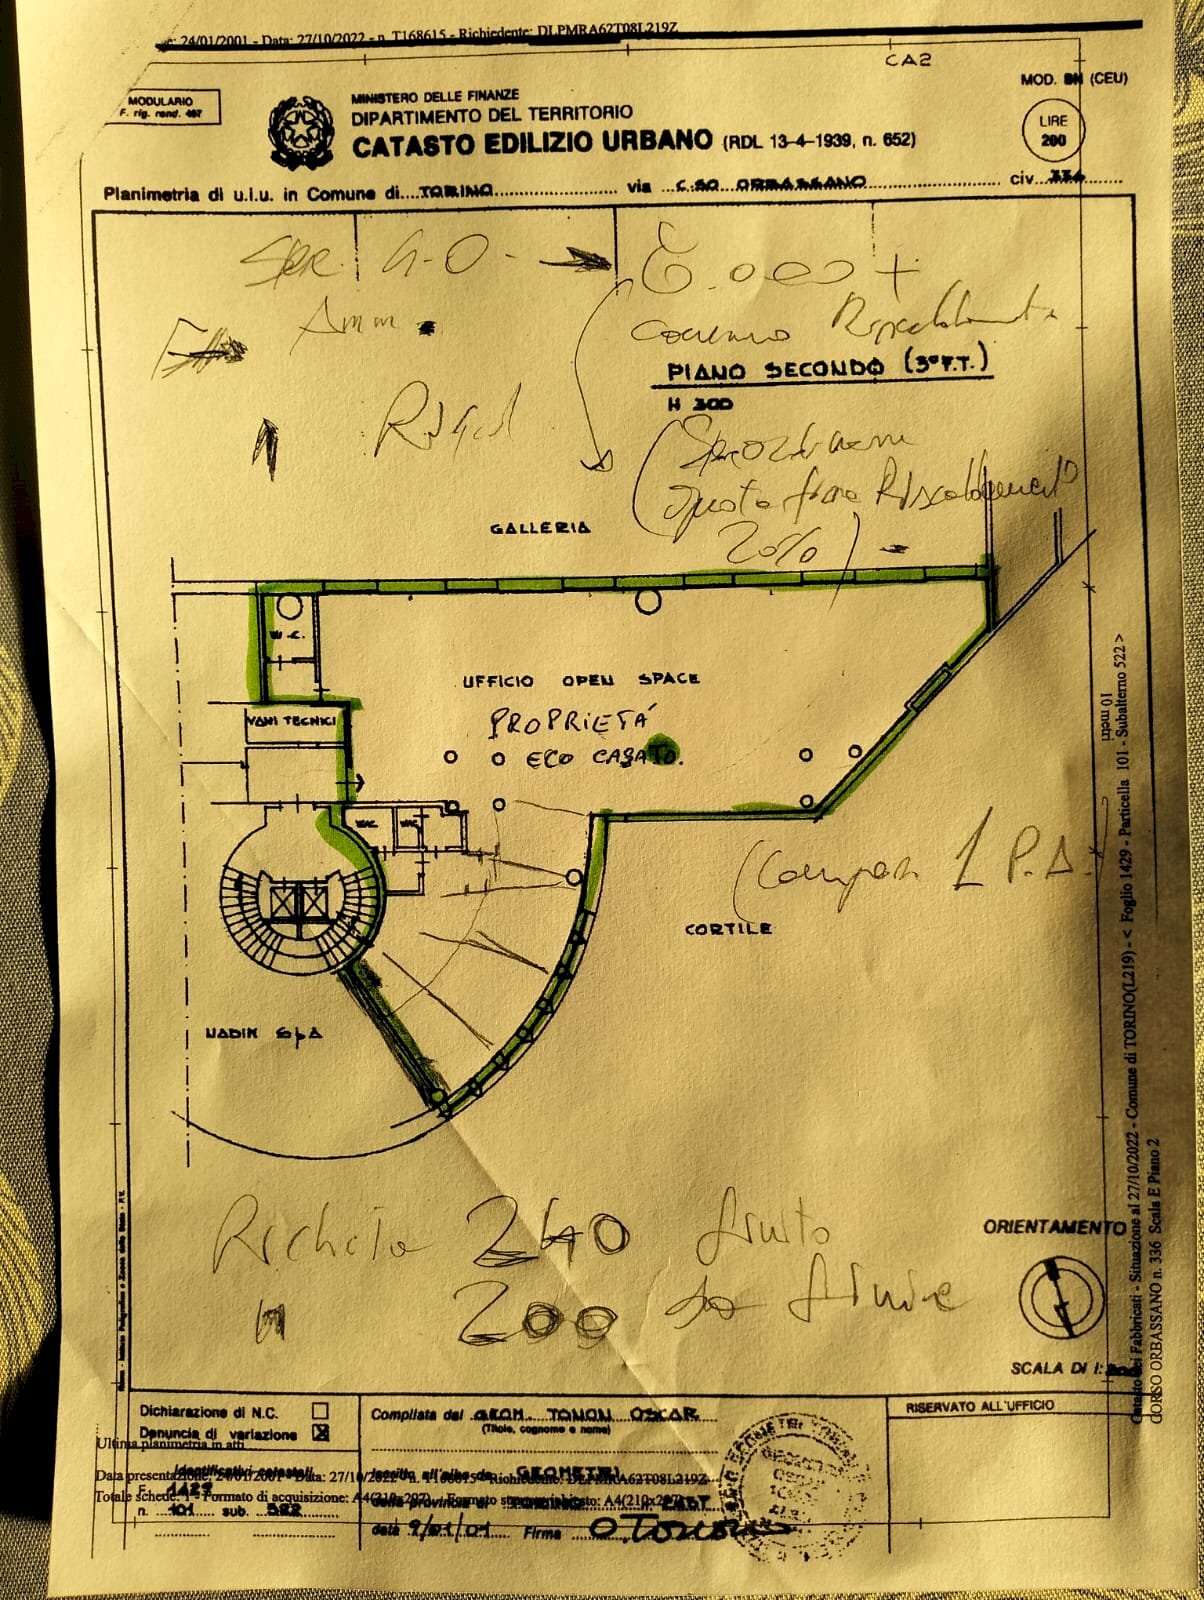 24/01/2001 - Data: 27/10/2022 - n. T168615 - Richiedente: DLPMRA62T08L219Z
CA2
MODULARIO
F. rig. rend. 497
MINISTERO DELLE FINANZE
DIPARTIMENTO DEL TERRITORIO
CATASTO EDILIZIO URBANO (RDL 13-4-1939, n. 652)
MOD. BN (CEU)
LIRE
200
Planimetria di u.i.u. in Comune di TORINO via C.SO ORBASSANO civ. 336
Amm.
PIANO SECONDO (3° F.T.)
H 300
Riscaldamento
20%)
GALLERIA
W.C.
UFFICIO OPEN SPACE
PROPRIETÁ
ECO CASATO.
VANI TECNICI
W.C.
W.C.
1 P.A.
CORTILE
NADIN SpA
Richiesta 240 finito
200 da finire
ORIENTAMENTO
SCALA DI 1:
10 metri
Catasto dei Fabbricati - Situazione al 27/10/2022 - Comune di TORINO(L219) - < Foglio 1429 - Particella 101 - Subalterno 522 >
CORSO ORBASSANO n. 336 Scala E Piano 2
Dichiarazione di N.C.
Denuncia di variazione
Ultima planimetria in atti
Identificativi catastali
Data presentazione: 24/01/2001 - Data: 27/10/2022 - n. T168615 - Richiedente: DLPMRA62T08L219Z
F. 1429
Totale schede: 1 - Formato di acquisizione: A4(210x297) - Formato stampa richiesto: A4(210x297)
n. 101 sub. 522
Compilata dal GEOM. TONON OSCAR
(Titolo, cognome e nome)
Iscritto all'albo de GEOMETRI
della provincia di TORINO
data 9/01/01 Firma O.Tonon
RISERVATO ALL'UFFICIO